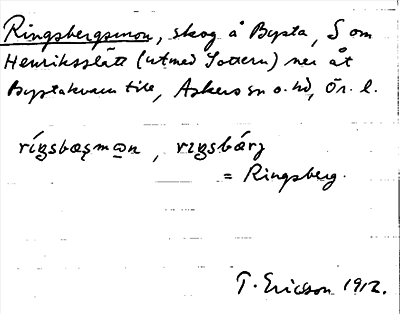 Ringsbergsmon, skog å Bysta, S om
Henriksslätt (utmed Sottern) ner åt
Bystakvarn till, Askers sn o. hd, Ör. l.
ríŋsbæȩmꙍn, rıŋsbárj
= Ringsberg.
T. Ericsson 1912.